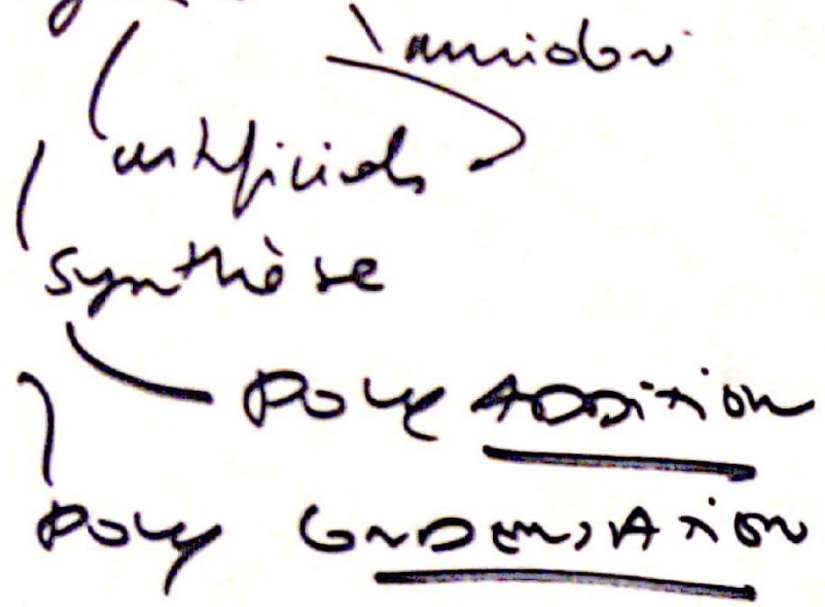 amidon
artificiels
synthèse
POLY ADDITION
POLY CONDENSATION